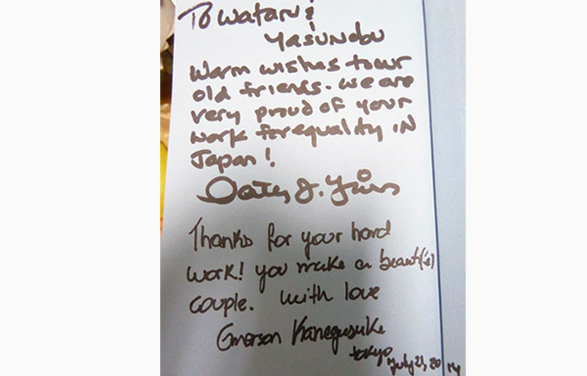 To Wataru &
Yasunobu
Warm wishes to our
old friends. We are
very proud of your
work for equality in
Japan!
Thanks for your hard
work! you make a beauti(s)
couple. with love
Emerson Kanegusuke
tokyo, July 21, 2014